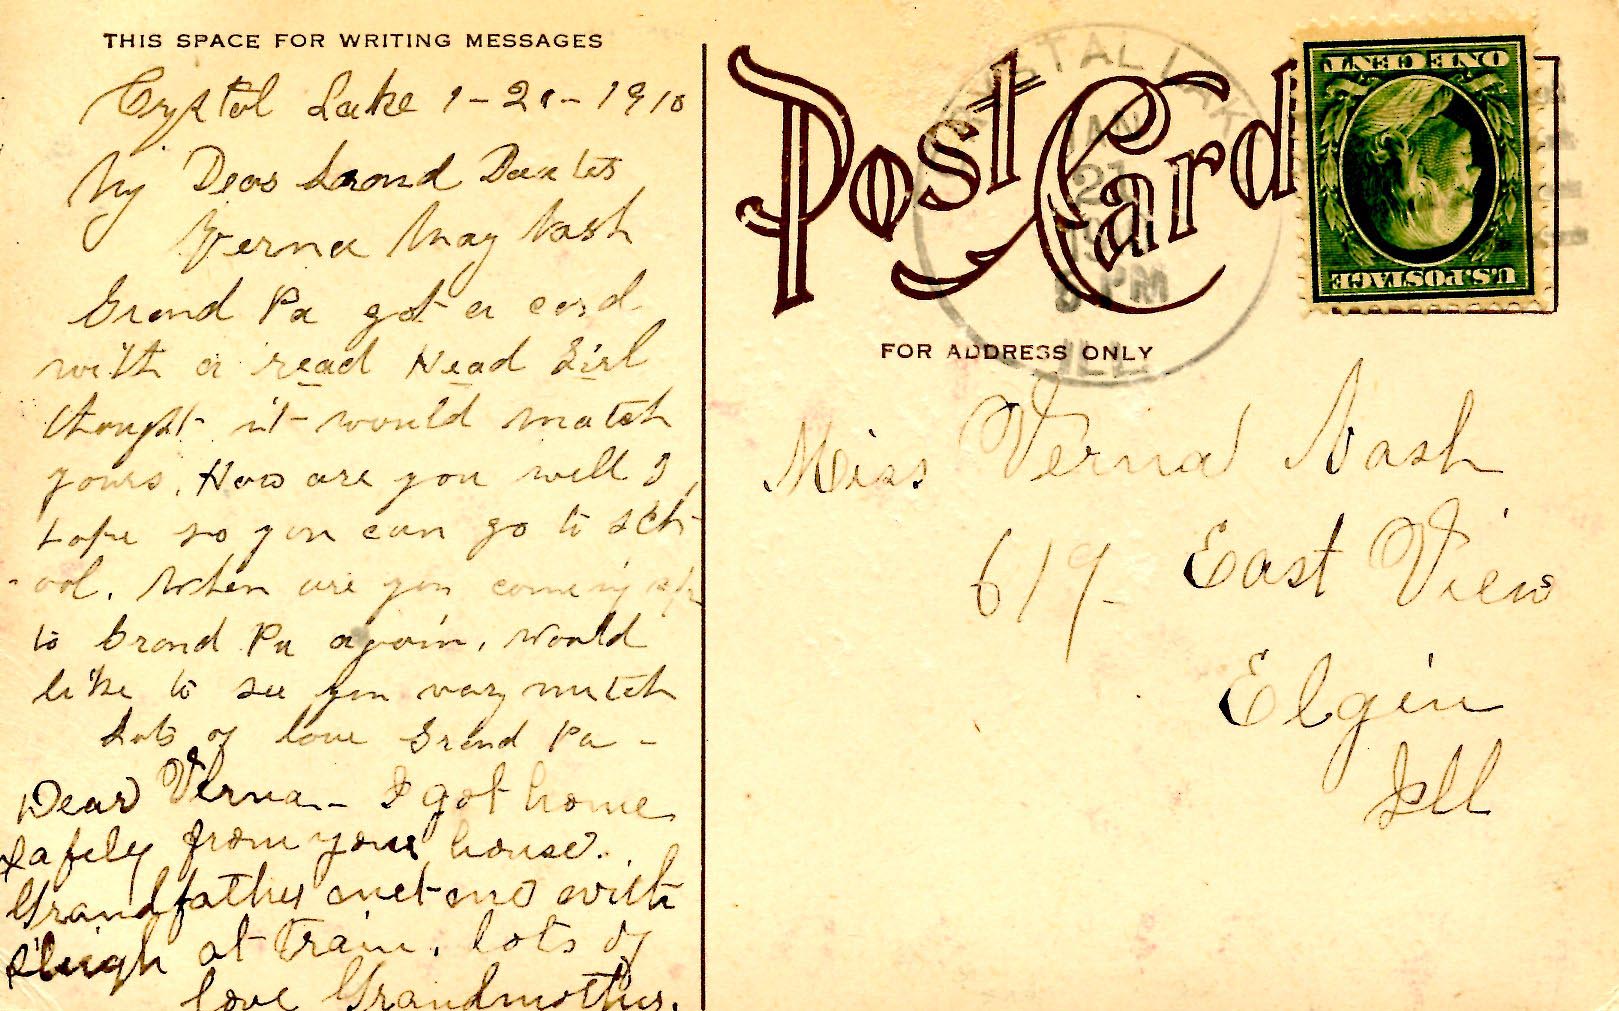 THIS SPACE FOR WRITING MESSAGES
Crystal Lake 1-21-1910
My Dear Grand Daxter
Verna May Nash
Grand Pa got a card
with a read Head Girl
thought it would match
yours. How are you well I
hope so you can go to sch-
-ool. When are you coming
to Grand Pa again. Would
like to see you vary mutch
Lots of love Grand Pa -
Dear Verna - I got home
safely from your house.
Grandfather met me with
sleigh at train. lots of
love Grandmother.
Post Card
FOR ADDRESS ONLY
CRYSTAL LAKE
JAN
21
5 PM
ILL.
ONE CENT
U.S. POSTAGE
Miss Verna Nash
619 East View
Elgin
Ill